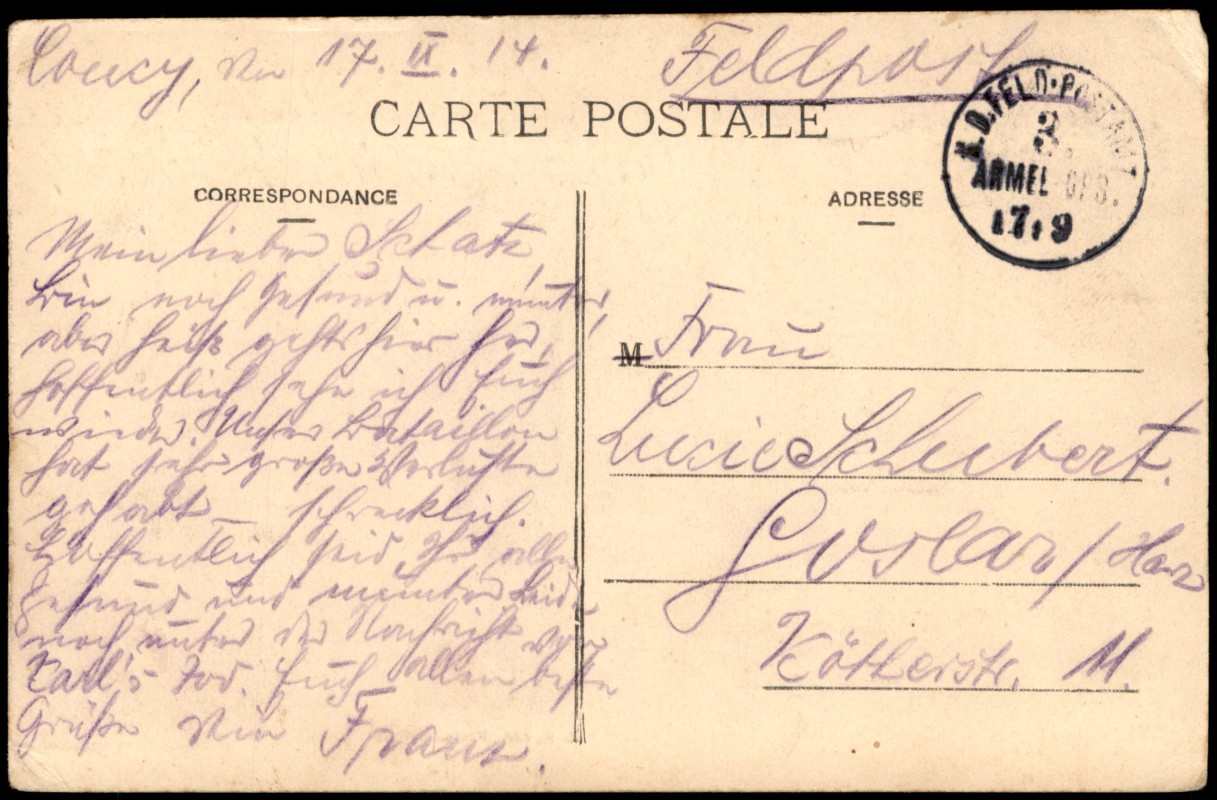 Coucy, den 17. IX. 14.
Feldpost
CARTE POSTALE
K. D. FELD-POSTAMT
2
ARMEE
17.9
CORRESPONDANCE
ADRESSE
Mein lieber Schatz,
bin noch gesund u. munter,
aber heiß gehts hier her,
hoffentlich sehe ich Euch
wieder. Unser Bataillon
hat sehr große Verluste
gehabt – schrecklich.
Hoffentlich seid Ihr alle
gesund und munter. Leide
noch unter der Nachricht von
Karl's Tod. Euch allen beste
Grüße Dein Franz.
M Frau
Lucie Schubert.
Goslar / Harz
Kötherstr. 11.